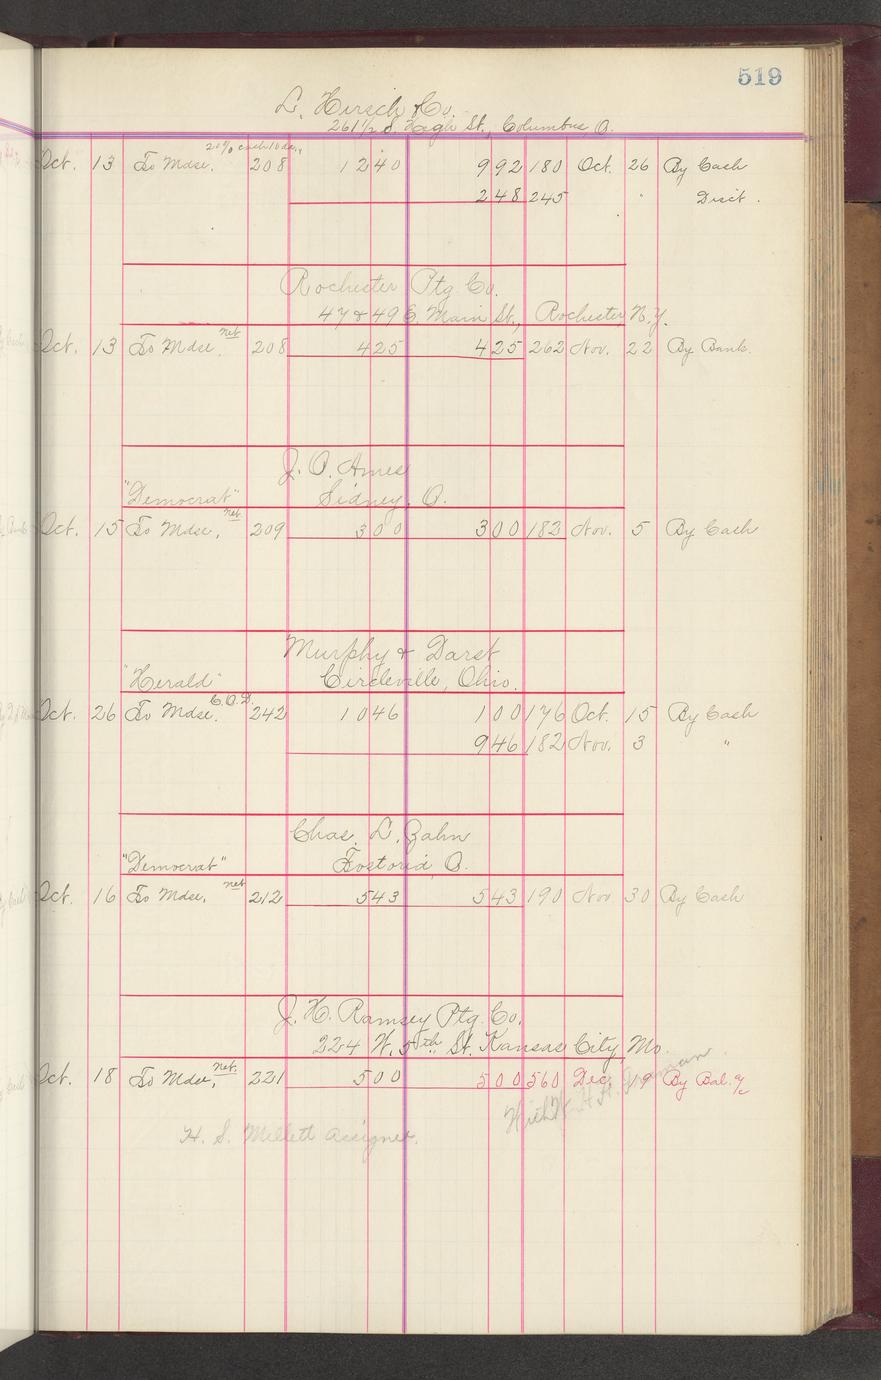 519
L. Hirsch & Co.
261 1/2 S. High St., Columbus, O.
20% cash 10 da.,
Oct. 13 To Mdse. 208 1240 992 180 Oct. 26 By Cash
248 245 " Disct.
Rochester Ptg. Co.
47 & 49 E. Main St., Rochester, N.Y.
Oct. 13 To Mdse. net 208 425 425 262 Nov. 22 By Bank.
J. O. Ames
"Democrat" Sidney, O.
Oct. 15 To Mdse. net 209 300 300 183 Nov. 5 By Cash
Murphy & Darst
"Herald" Circleville, Ohio.
Oct. 26 To Mdse. C.O.D. 242 1046 100 176 Oct. 15 By Cash
946 182 Nov. 3 "
Chas. L. Zahn
"Democrat" Fostoria, O.
Oct. 16 To Mdse. net 212 543 543 190 Nov 30 By Cash
J. H. Ramsey Ptg. Co.
224 W. 5th St. Kansas City Mo.
Oct. 18 To Mdse, net. 221 500 500 560 Dec. 19 By Bal. a/c
H. S. Millett Assignee.